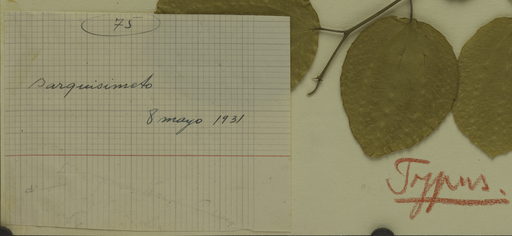 75
Barquisimeto
8 mayo 1931
Typus.